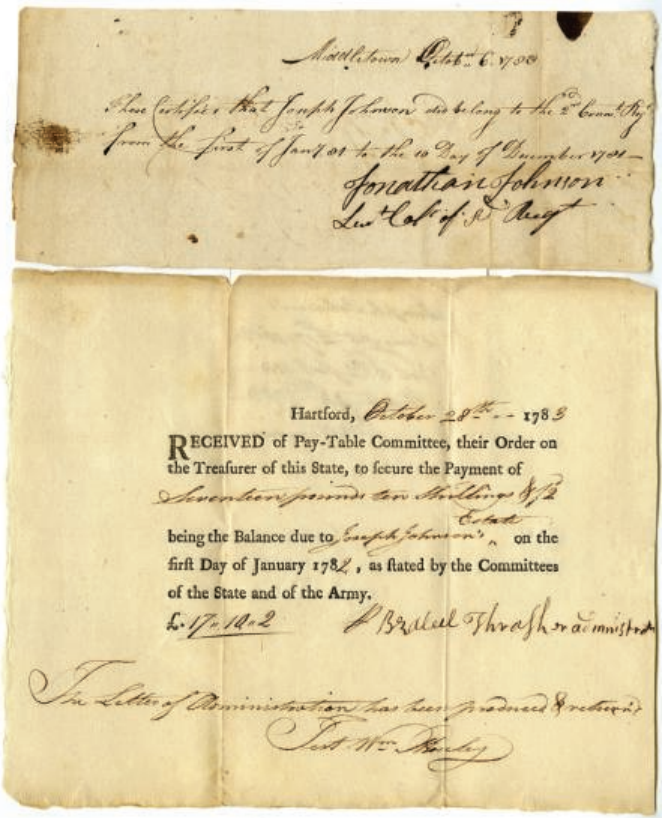 Middletown Octobr. 6. 1783
These Certifies that Joseph Johnson did belong to the 2d Connt. Regt
from the first of Jany. 81 to the 10 Day of December 1781 —
Jonathan Johnson
Leut Colo of Regt
Hartford, October 28th -- 1783
RECEIVED of Pay-Table Committee, their Order on
the Treasurer of this State, to secure the Payment of
Seventeen pounds ten Shillings & /2
Estate
being the Balance due to Joseph Johnson's " on the
first Day of January 1782, as stated by the Committees
of the State and of the Army.
£. 17 " 10 " 2
Thrasher administr
The Letter of Administration has been produced & return'd
Test Wm.